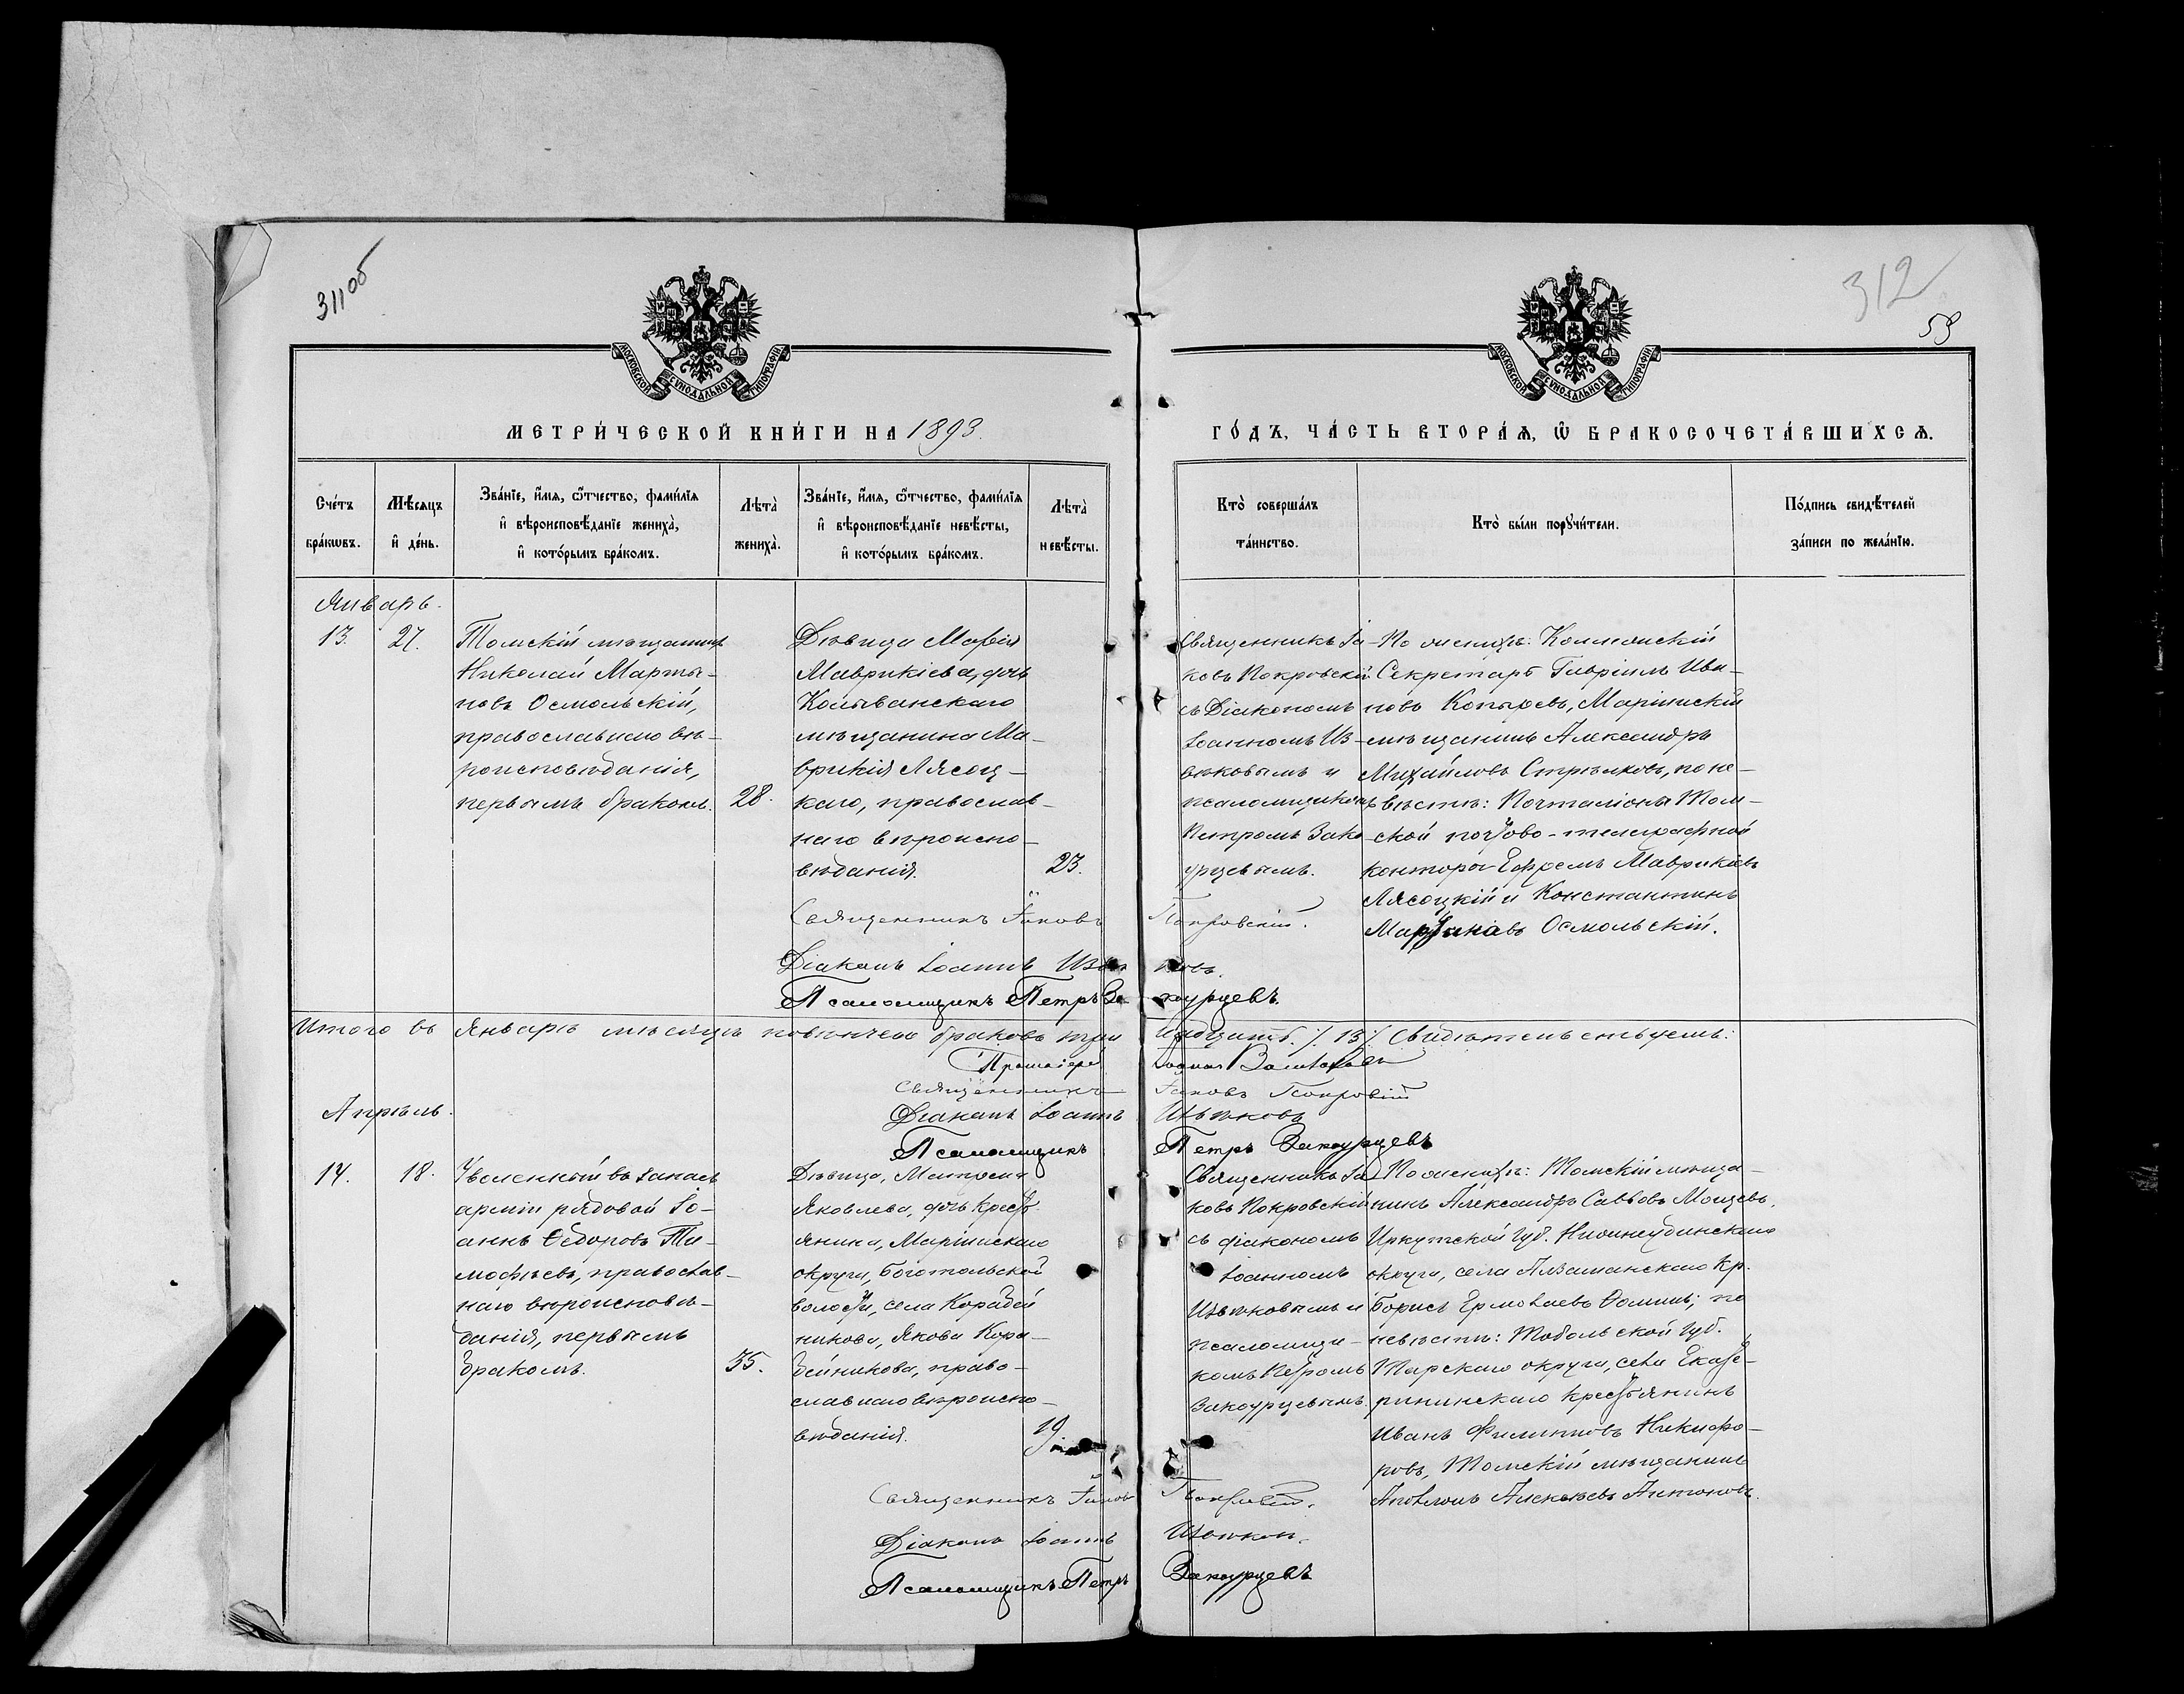 311об
312
59
МОСКОВСКОЙ СѴНОДАЛЬНОЙ ТИПОГРАФІИ
МОСКОВСКОЙ СѴНОДАЛЬНОЙ ТИПОГРАФІИ
МЕТРИ́ЧЕСКОЙ КНИ́ГИ НА 1893.
ГО́ДЪ, ЧА́СТЬ ВТОРА́Ѧ, Ѿ БРАКОСОЧЕТА́ВШИХСѦ.
Сче́тъ бра́кѡвъ.
Мѣ́сяцъ и҆ де́нь.
Зва́нїе, и҆́мѧ, ѻ҆́тчество, фами́лїѧ
и҆ вѣроисповѣ́данїе жениха̀,
и҆ кото́рымъ бра́комъ.
Лѣта̀ жениха̀.
Зва́нїе, и҆́мѧ, ѻ҆́тчество, фами́лїѧ
и҆ вѣроисповѣ́данїе невѣ́сты,
и҆ кото́рымъ бра́комъ.
Лѣта̀ невѣ́сты.
Кто̀ соверша́лъ
та́инство.
Кто̀ бы́ли порꙋчи́тели.
По́дпись свидѣ́телей
за́писи по жела́нїю.
Январь.
13. 27.
Томскій мѣщанинъ
Николай Марты-
новъ Осмольскій,
православнаго вѣ-
роисповѣданія,
первымъ бракомъ. 28.
Дѣвица Марія
Маврикіева, дочь
Колыванскаго
мѣщанина Ма-
врикія Лясоц-
каго, православ-
наго вѣроиспо-
вѣданія. 23.
Священникъ Іа-
ковъ Покровскій
съ Діакономъ
Іоанномъ Ив-
ѣковымъ и
псаломщикомъ
Петромъ Зако-
урцевымъ.
По женихѣ:
Секретарь Гавріилъ Ива-
новъ Копыревъ, Маріинскій
мѣщанинъ Александръ
Михайловъ Стрѣлковъ, по не-
вѣстѣ: Почталіонъ Том-
ской почтово-телеграфной
конторы Ефремъ Маврикіевъ
Лясоцкій и Константинъ
Мартиніавъ Осмольскій.
Священникъ Іаковъ Покровскій.
Діаконъ Іоаннъ
Псаломщикъ Петръ Закоурцевъ.
Итого въ Январѣ мѣсяцѣ повѣнчено браковъ тринадцать ./. 13 /. Свидѣтельствуемъ:
Протоіерей
Священникъ Іаковъ Покровскій
Діаконъ Іоаннъ
Псаломщикъ Петръ Закоурцевъ
Апрѣль.
14. 18.
Уволенный въ запасъ
арміи рядовой Іо-
аннъ Ѳедоровъ Ти-
мофѣевъ, православ-
наго вѣроисповѣ-
данія, первымъ
бракомъ. 35.
Дѣвица, Матрона
Яковлева, дочь крест-
янина, Маріинскаго
округа, Боготольской
волости, села Корабей-
никова, Якова Кора-
бейникова, право-
славнаго вѣроиспо-
вѣданія. 19
Священникъ Іа-
ковъ Покровскій
съ діакономъ
Іоанномъ
и
псаломщи-
комъ Петромъ
Закоурцевымъ.
По женихѣ: Томскій мѣща-
нинъ Александръ Саввовъ
Иркутской губ. Нижнеудинскаго
округа, села Алзамайскаго Кр.
Борисъ Ермолаевъ Ѳоминъ; по
невѣстѣ: Тобольской губ.
Тарскаго округа, села Екате-
рининскаго крестьянинъ
Иванъ Филипповъ Никифо-
ровъ, Томскій мѣщанинъ
Аполлонъ Алексѣевъ Антоновъ.
Священникъ Іаковъ Покровскій.
Діаконъ Іоаннъ
Псаломщикъ Петръ Закоурцевъ